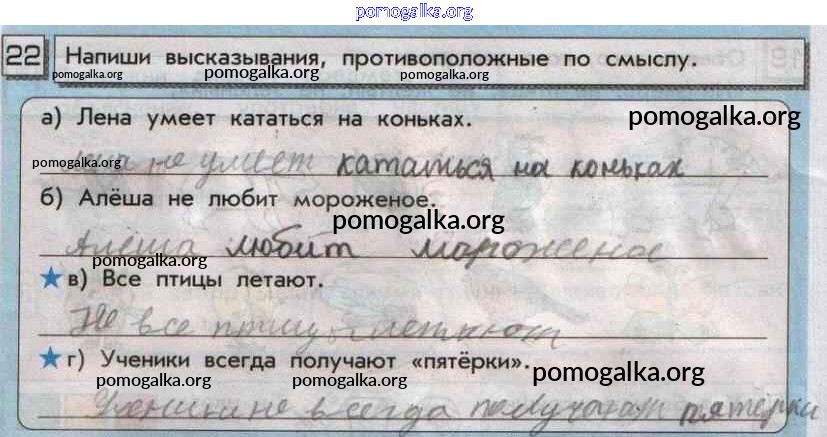 pomogalka.org
22 Напиши высказывания, противоположные по смыслу.
pomogalka.org pomogalka.org pomogalka.org
а) Лена умеет кататься на коньках.
pomogalka.org
pomogalka.org
не умеет кататься на коньках
б) Алёша не любит мороженое.
pomogalka.org
Алёша любит мороженое
pomogalka.org
★ в) Все птицы летают.
Не все птицы летают
★ г) Ученики всегда получают «пятёрки».
pomogalka.org pomogalka.org pomogalka.org
Ученики не всегда получают пятёрки